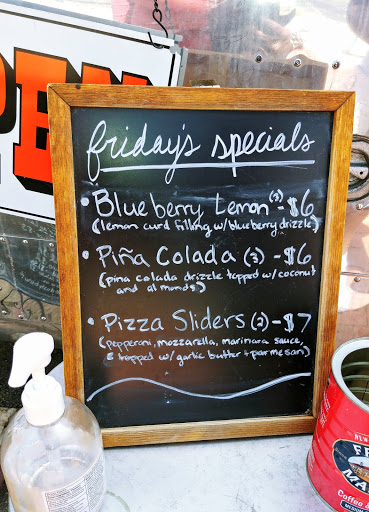 PEN
friday's specials
• Blueberry Lemon (3) - $6
(lemon curd filling w/ blueberry drizzle)
• Piña Colada (3) - $6
(pina colada drizzle topped w/ coconut
and almonds)
• Pizza Sliders (2) - $7
(pepperoni, mozzarella, marinara sauce,
& topped w/ garlic butter + parmesan)
Coffee